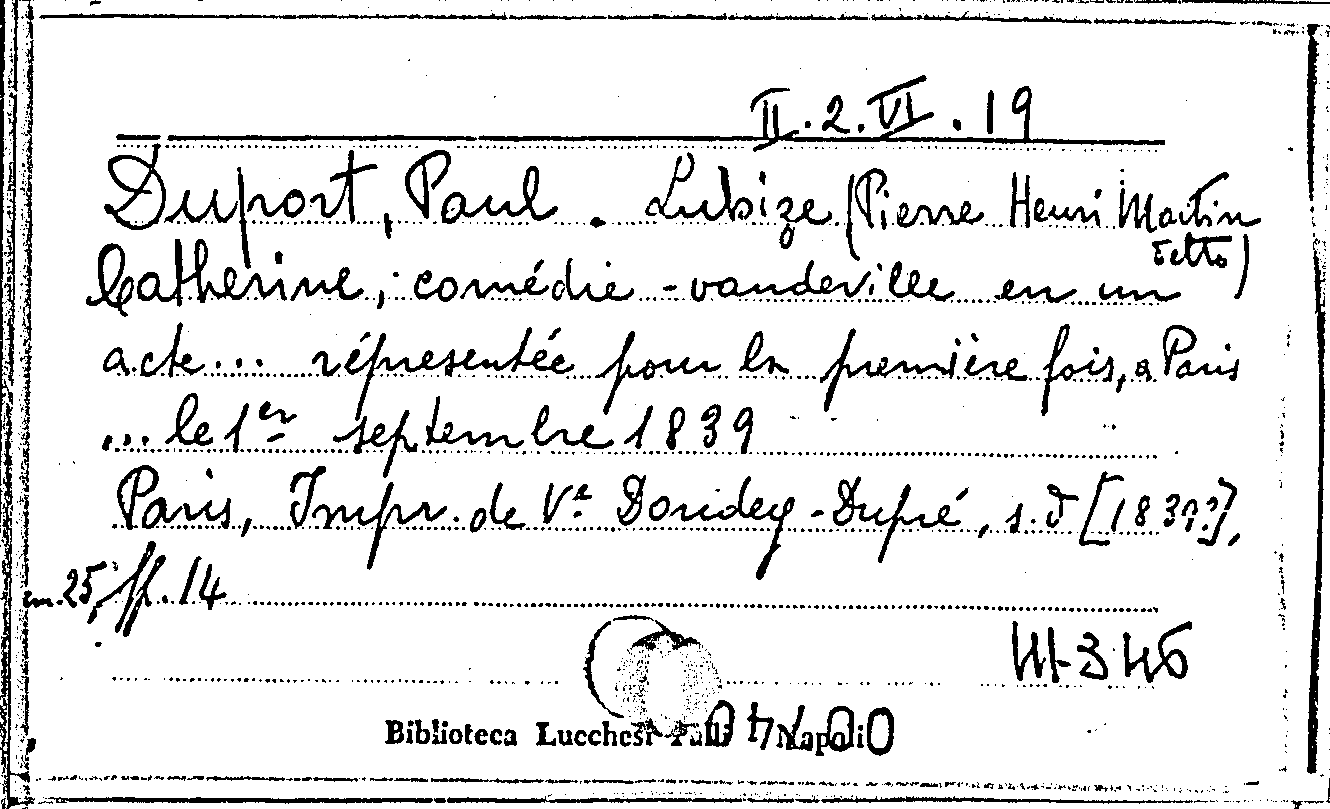 II.2.VI.19
Duport, Paul. Lubize (Pierre Henri Martin
detto)
Catherine, comédie-vaudeville en un
acte... répresentée pour la première fois, a Paris
... le 1er septembre 1839
Paris, Impr. de Ve Dondey-Dupré, s.d [1839?],
cm. 25, ff. 14
Biblioteca Lucchesi Palli Napoli